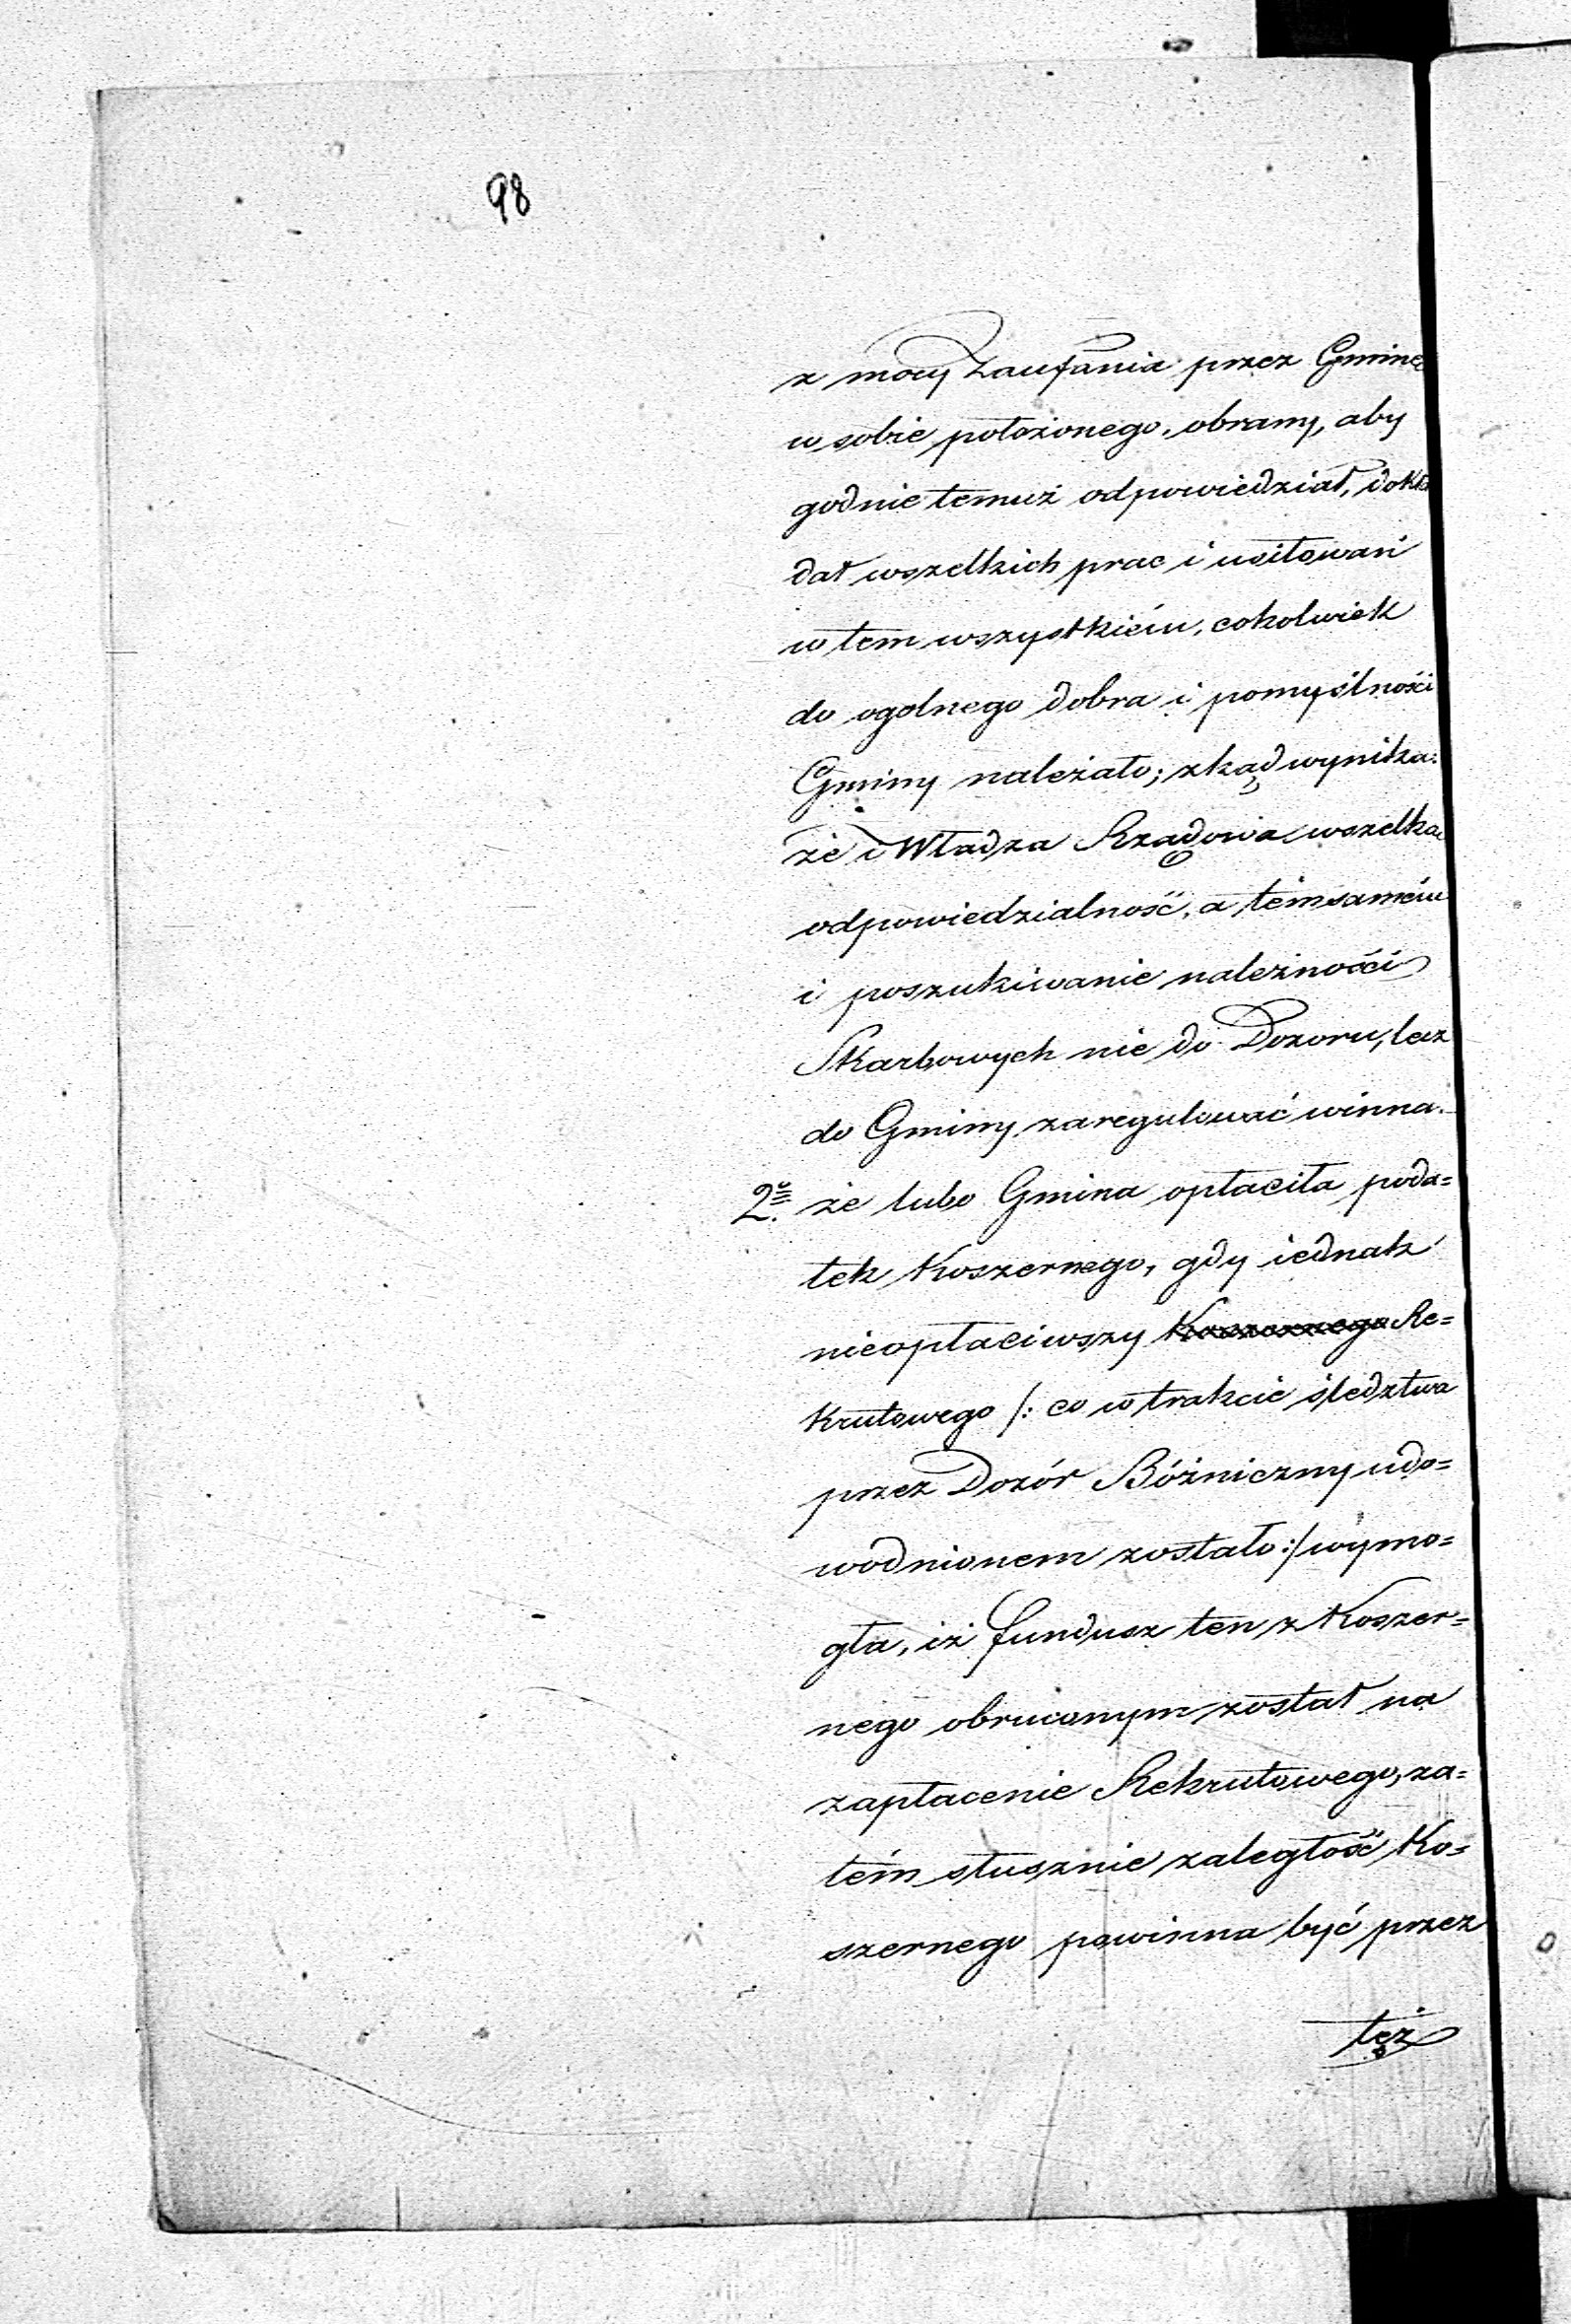 98
z mocy Zaufania przez Gminę
w sobie położonego, obrany, aby
godnie temuż odpowiedział, dokła
dał wszelkich prac i usiłowań
w tem wszystkiém, cokolwiek
do ogolnego dobra i pomyślności
Gminy należało; zkąd wynika:
że i Władza Rządowa wszelką
odpowiedzialność, a témsamém
i poszukiwanie należności
Skarbowych nie do Dozoru, lecz
do Gminy zaregulować winna.
2º że lubo Gmina opłaciła poda=
tek Koszernego, gdy iednak
nieopłaciwszy Koszernego Re=
krutowego /: co w trakcie śledztwa
przez Dozór Bóżniczny udo=
wodnionem zostało :/ wymo=
gła, iż fundusz ten z Koszer=
nego obruconym został na
zapłacenie Rekrutowego, za=
tém słusznie zaległość Ko=
szernego powinna być przez
tęż